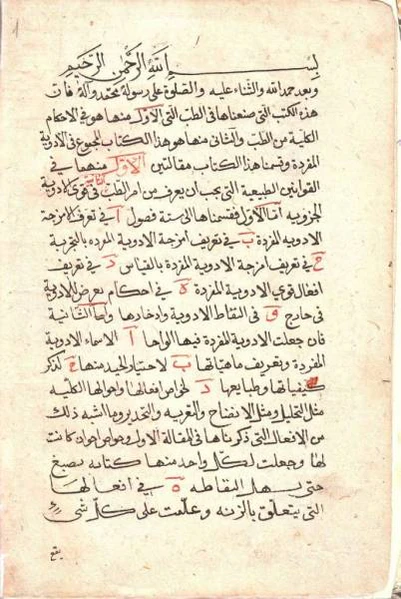 بسم الله الرحمن الرحيم
وبعد حمد الله والثناء عليه والصلوة على رسوله محمد وآله فان
هذه الكتب التي صنعناها في الطب التي الاول منها هو في الاحكام
الكلية من الطب والثاني منها هو هذا الكتاب المجموع في الادوية
المفردة وقسمنا هذا الكتاب مقالتين الاولى منهما في
القوانين الطبيعية التي يجب ان يعرف من امر الطب في قوي الادوية
الجزويه اما الاول فقسمناها الى ستة فصول آ في تعرف امزجة
الادويه المفردة ب في تعريف امزجة الادوية المفرده بالتجربة
ج في تعريف امزجة الادوية المفردة بالقياس د في تعريف
افعال قوي الادوية المفردة ه في احكام يعرض للادوية
في خارج و في التقاط الادوية وادخارها واما الثانية
فان جعلت الادوية المفردة فيها الواحا آ الاسماء الادوية
المفردة وتعريف ماهياتها ب لاختيار الجيد منها ج لذكر
كيفياتها وطبايعها د لخواص افعالها واحوالها الكليه
مثل التحليل ومثل الانضاج والتغريه والتخدير وما اشبه ذلك
من الافعال التي ذكرناها في المقالة الاولى وخواص اخوان كانت
لها وجعلت لكل واحد منها كتابه بصبغ
حتى يسهل التقاطه ه في افعالها
التي يتعلق بالزنه وعلمت على كل شي
يقع